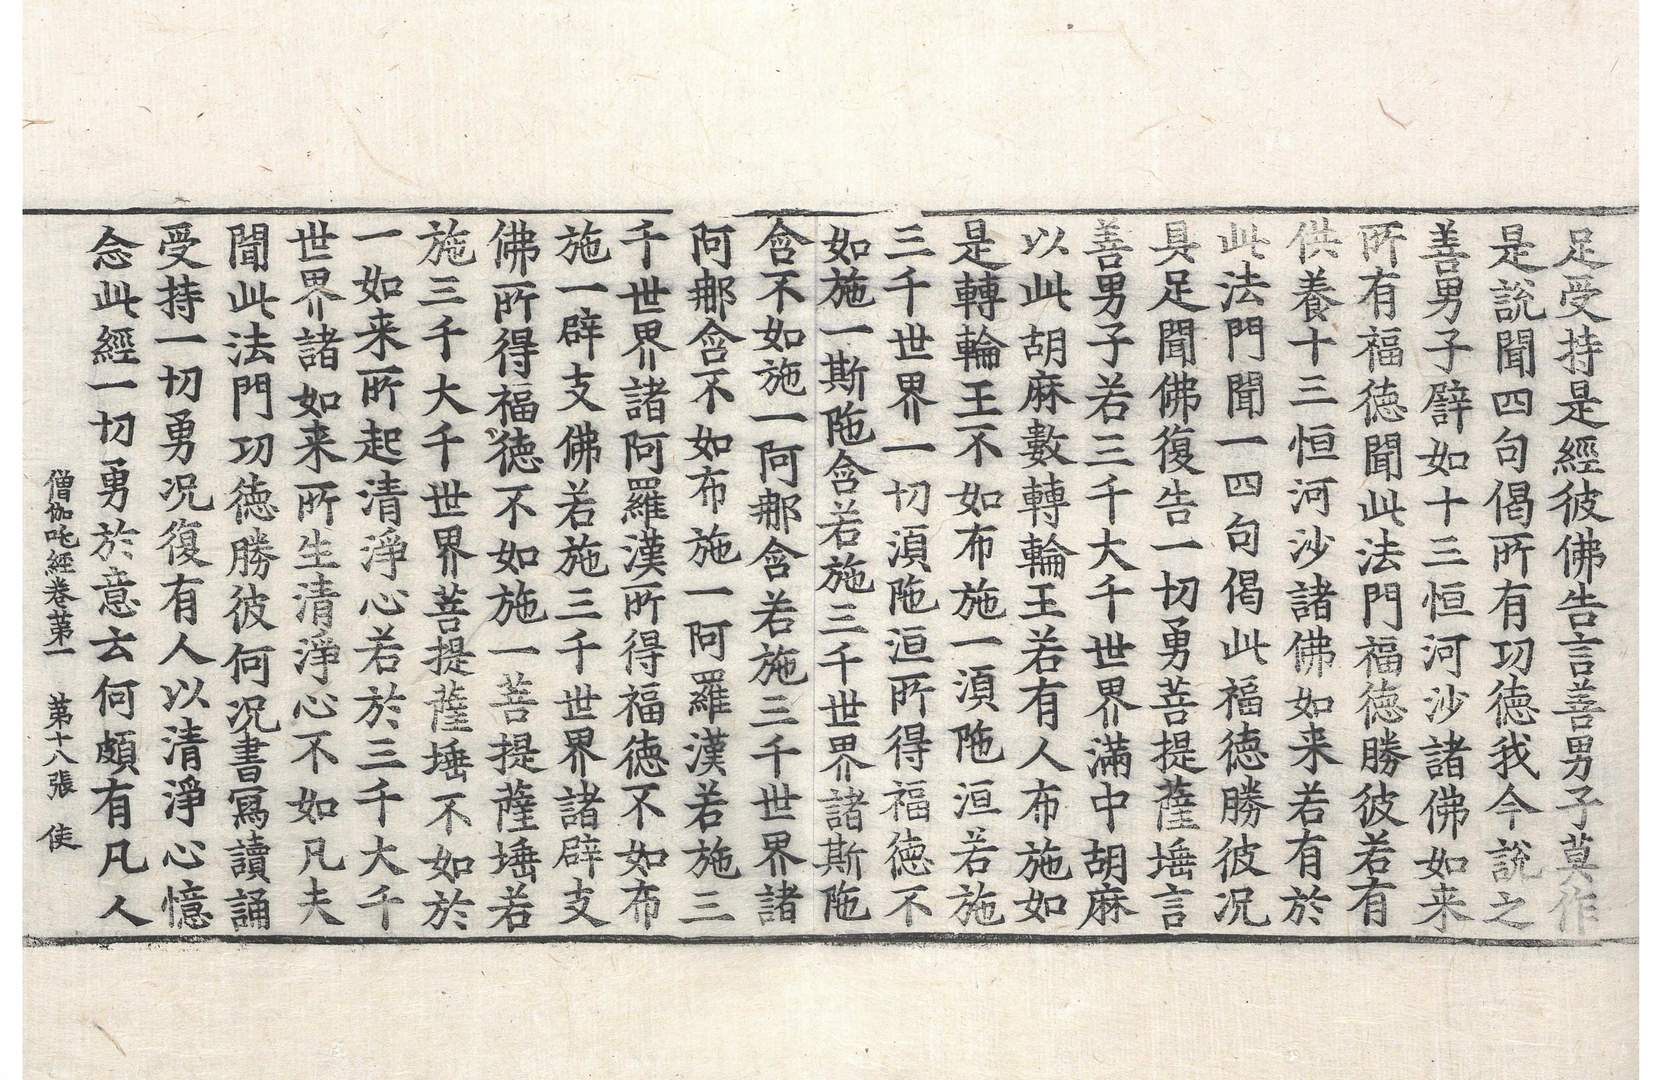 足受持是經彼佛告言善男子莫作
是說聞四句偈所有功德我今說之
善男子譬如十三恒河沙諸佛如来
所有福德聞此法門福德勝彼若有
供養十三恒河沙諸佛如来若有於
此法門聞一四句偈此福德勝彼况
具足聞佛復告一切勇菩提薩埵言
善男子若三千大千世界滿中胡麻
以此胡麻數轉輪王若有人布施如
是轉輪王不如布施一湏陁洹若施
三千世界一切湏陁洹所得福德不
如施一斯陁含若施三千世界諸斯陁
含不如施一阿那含若施三千世界諸
阿那含不如布施一阿羅漢若施三
千世界諸阿羅漢所得福德不如布
施一辟支佛若施三千世界諸辟支
佛所得福德不如施一菩提薩埵若
施三千大千世界菩提薩埵不如於
一如来所起清淨心若於三千大千
世界諸如来所生清淨心不如凡夫
聞此法門功德勝彼何况書寫讀誦
受持一切勇况復有人以清淨心憶
念此經一切勇於意云何頗有凡人
僧伽吒經卷第一 第十八張 使